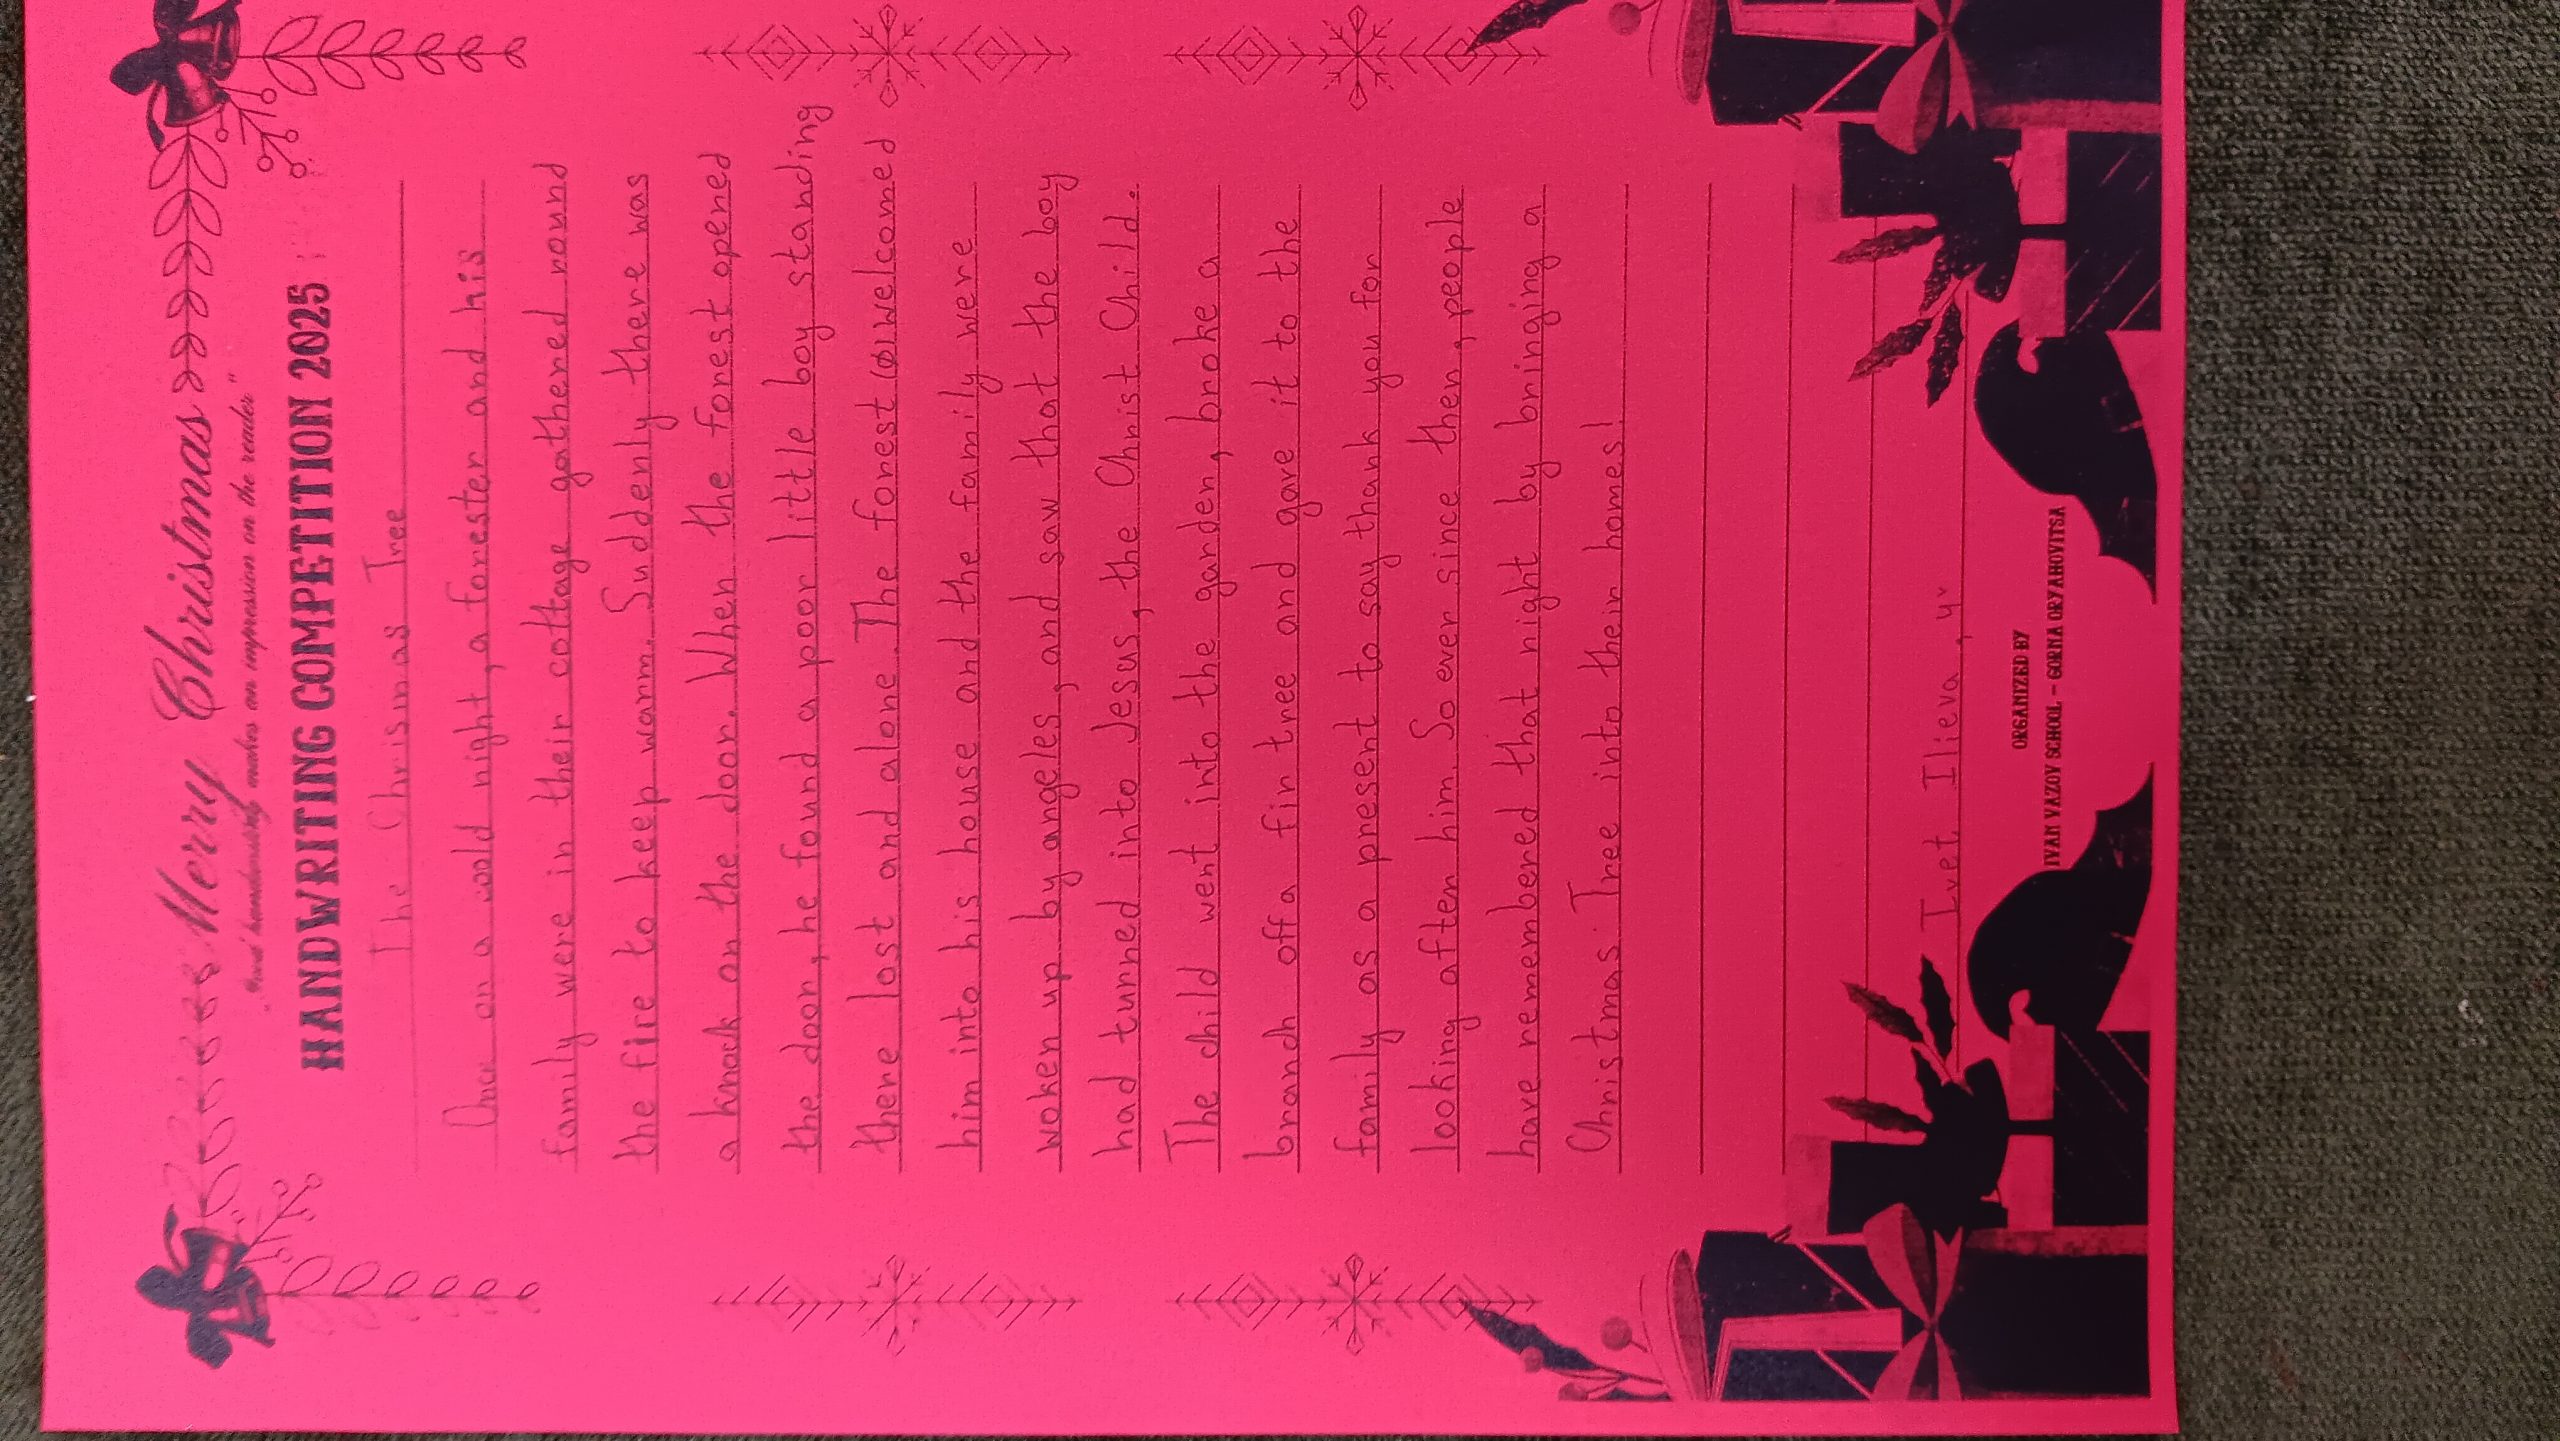 Merry Christmas
"Good handwriting makes an impression on the reader"
HANDWRITING COMPETITION 2025
The Chrismas Tree
Once on a cold night, a forester and his
family were in their cottage gathered round
the fire to keep warm. Suddenly there was
a knock on the door. When the forest opened
the door, he found a poor little boy standing
there lost and alone. The forest welcomed
him into his house and the family were
woken up by angeles, and saw that the boy
had turned into Jesus, the Christ Child.
The child went into the garden, broke a
branch off a fir tree and gave it to the
family as a present to say thank you for
looking after him. So ever since then, people
have remembered that night by bringing a
Christmas Tree into their homes!
Ivet Ilieva, 4
ORGANIZED BY
IVAN VAZOV SCHOOL – GORNA ORYAHOVITSA